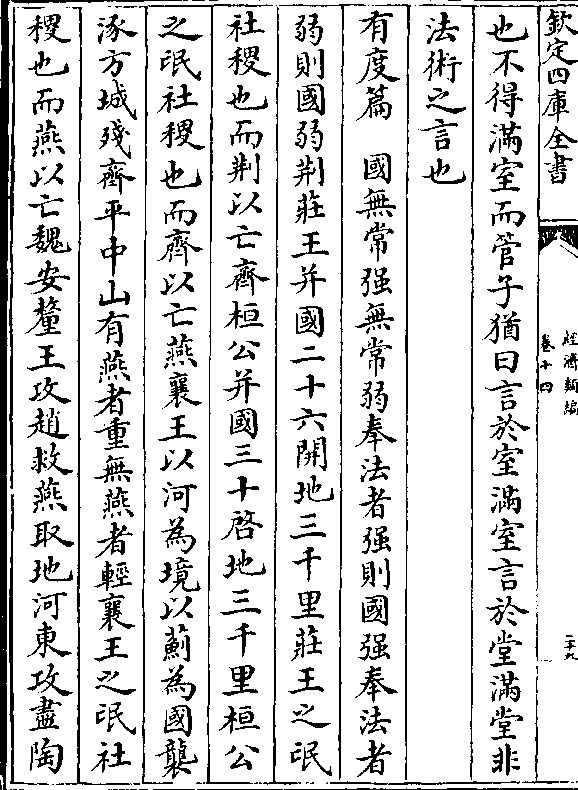 欽定四庫全書
經濟類編
卷十四
二十九
也不得滿室而管子猶曰言於室滿室言於堂滿堂非
法術之言也
有度篇　國無常强無常弱奉法者强則國强奉法者
弱則國弱荆莊王并國二十六開地三千里莊王之氓
社稷也而荆以亡齊桓公并國三十啓地三千里桓公
之氓社稷也而齊以亡燕襄王以河為境以薊為國襲
涿方城殘齊平中山有燕者重無燕者輕襄王之氓社
稷也而燕以亡魏安釐王攻趙救燕取地河東攻盡陶